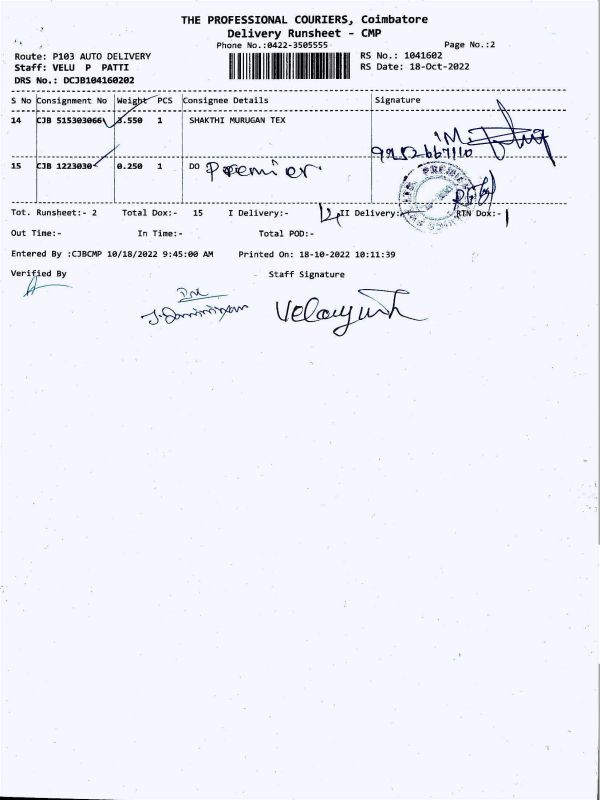 THE PROFESSIONAL COURIERS, Coimbatore
Delivery Runsheet - CMP
Phone No.:0422-3505555 Page No.:2
Route: P103 AUTO DELIVERY RS No.: 1041602
Staff: VELU P PATTI RS Date: 18-Oct-2022
DRS No.: DCJB104160202
S No Consignment No Weight PCS Consignee Details Signature
14 CJB 515303066 3.550 1 SHAKTHI MURUGAN TEX
15 CJB 1223030 0.250 1 DO Premier.
Tot. Runsheet:- 2 Total Dox:- 15 I Delivery:- 14 II Delivery:- RTN Dox:- 1
Out Time:- In Time:- Total POD:-
Entered By :CJBCMP 10/18/2022 9:45:00 AM Printed On: 18-10-2022 10:11:39
Verified By Staff Signature